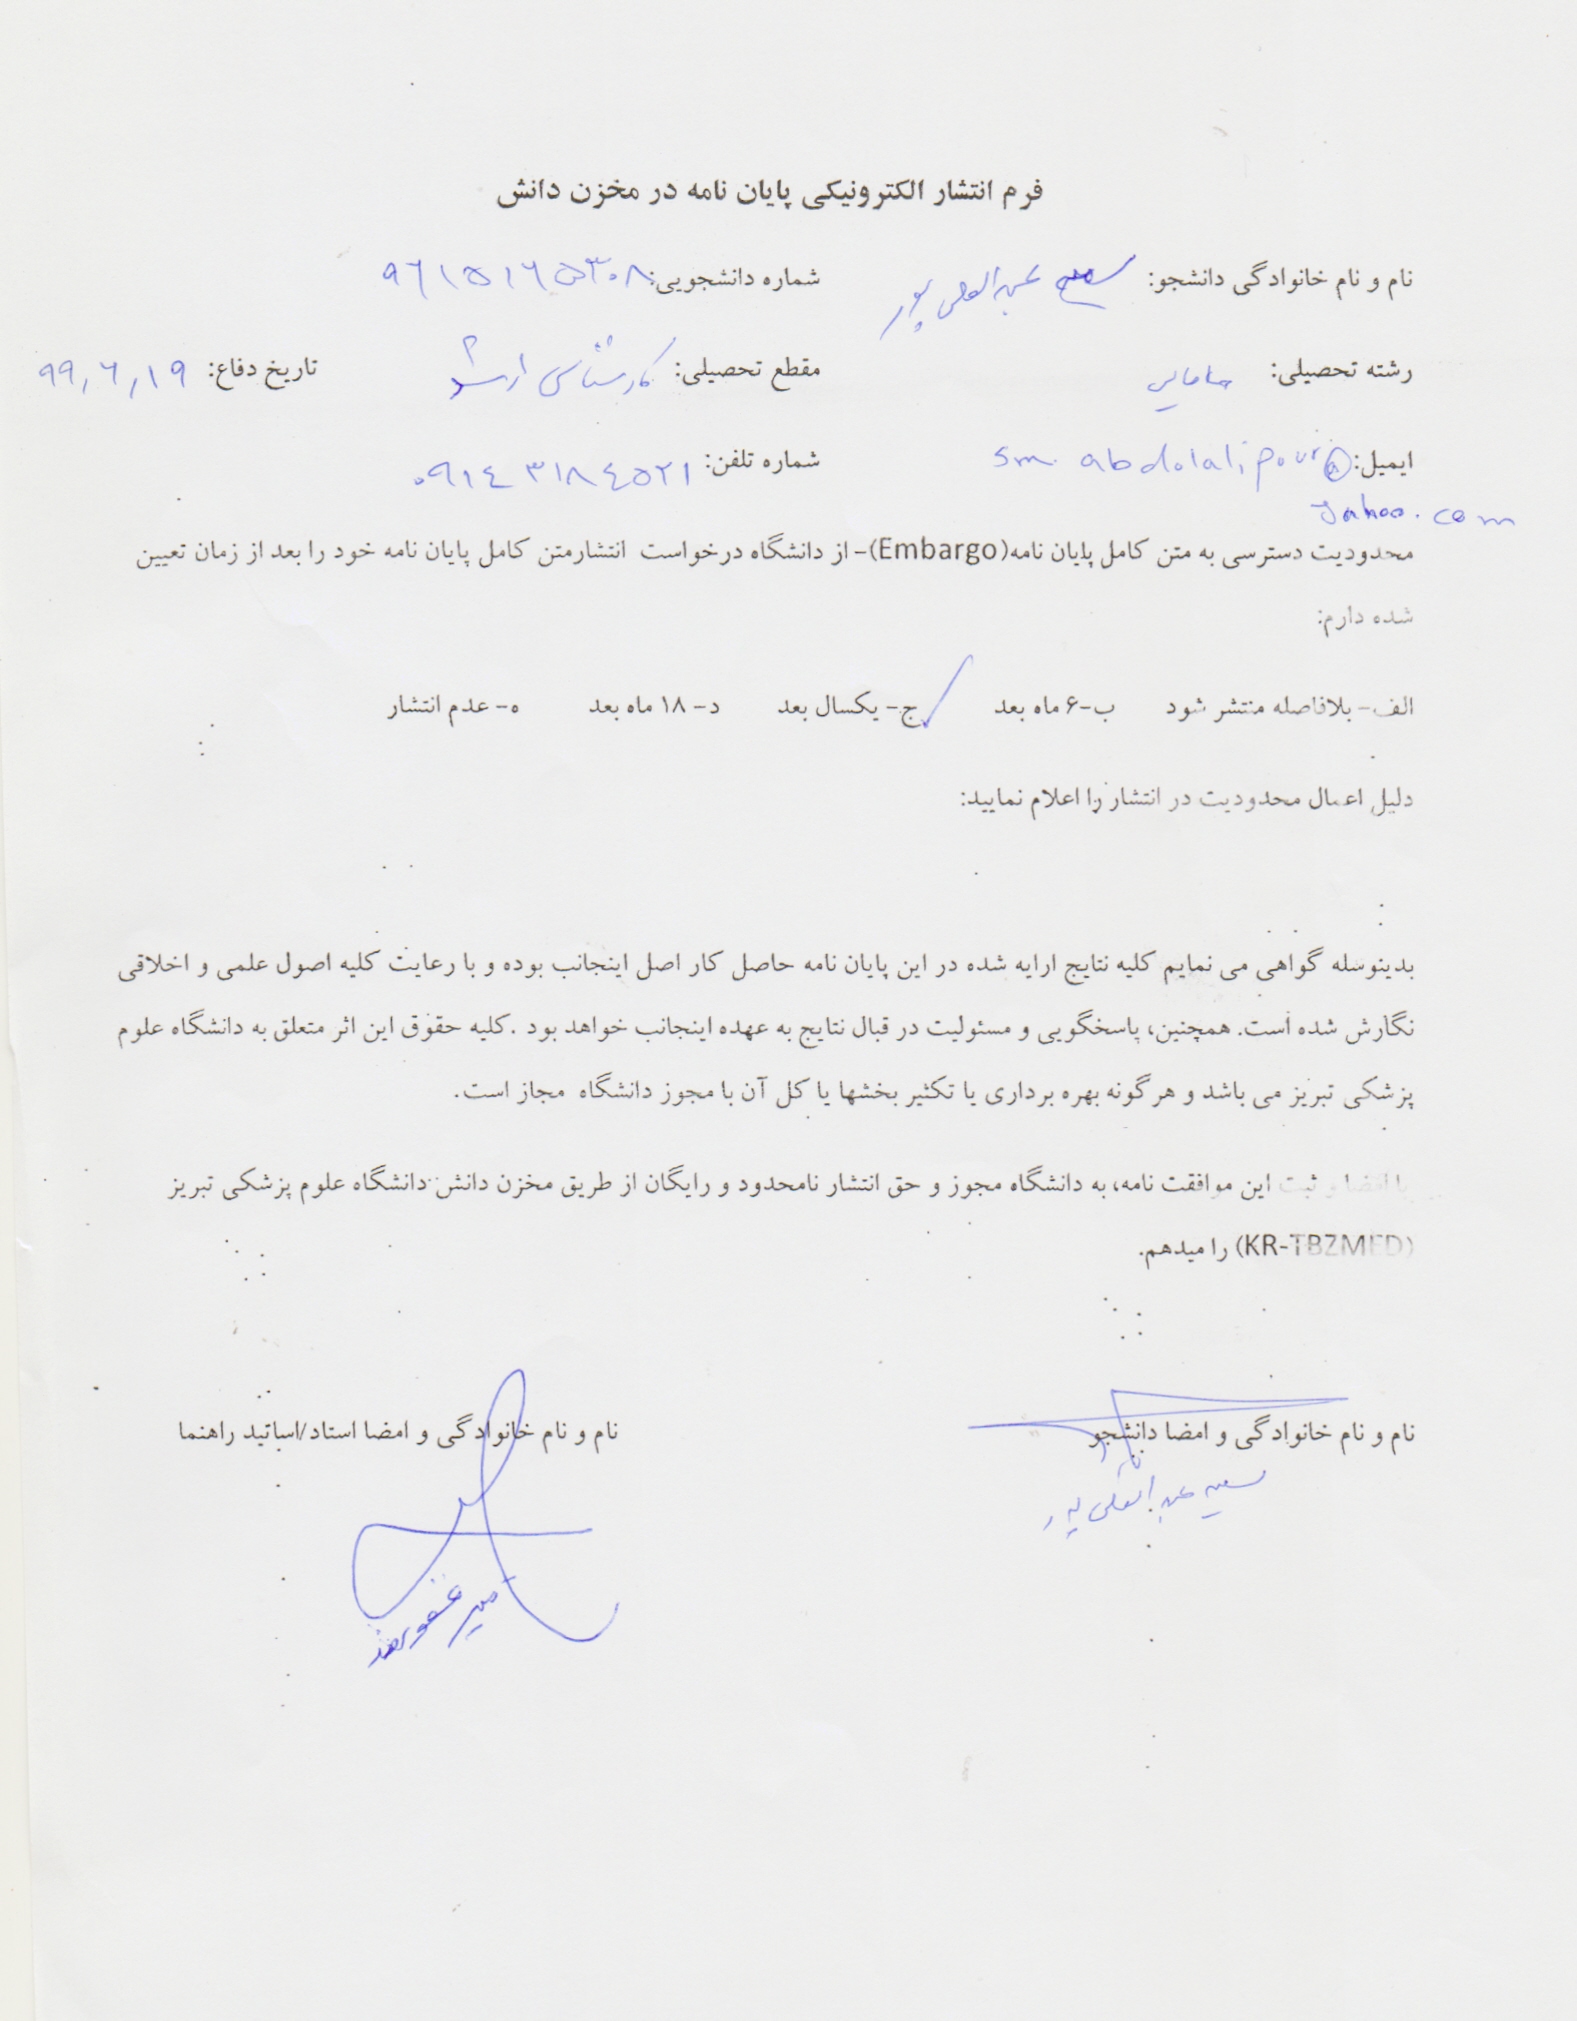 فرم انتشار الکترونیکی پایان نامه در مخزن دانش
نام و نام خانوادگی دانشجو: عبدالعلی پور شماره دانشجویی: ۹۶۱۵۱۶۵۳۰۸
رشته تحصیلی: مامایی مقطع تحصیلی: کارشناسی ارشد تاریخ دفاع: ۹۹,۶,۱۹
ایمیل: sm.abdolalipour@ شماره تلفن: ۰۹۱۴۳۱۸۴۵۲۱
yahoo.com
محدودیت دسترسی به متن کامل پایان نامه(Embargo)- از دانشگاه درخواست انتشارمتن کامل پایان نامه خود را بعد از زمان تعیین
شده دارم:
الف- بلافاصله منتشر شود ب-۶ ماه بعد ج- یکسال بعد د- ۱۸ ماه بعد ه- عدم انتشار
دلیل اعمال محدودیت در انتشار را اعلام نمایید:
بدینوسله گواهی می نمایم کلیه نتایج ارایه شده در این پایان نامه حاصل کار اصل اینجانب بوده و با رعایت کلیه اصول علمی و اخلاقی
نگارش شده است. همچنین، پاسخگویی و مسئولیت در قبال نتایج به عهده اینجانب خواهد بود .کلیه حقوق این اثر متعلق به دانشگاه علوم
پزشکی تبریز می باشد و هرگونه بهره برداری یا تکثیر بخشها یا کل آن با مجوز دانشگاه مجاز است.
با امضا و ثبت این موافقت نامه، به دانشگاه مجوز و حق انتشار نامحدود و رایگان از طریق مخزن دانش دانشگاه علوم پزشکی تبریز
(KR-TBZMED) را میدهم.
نام و نام خانوادگی و امضا دانشجو نام و نام خانوادگی و امضا استاد/اساتید راهنما
عبدالعلی پور